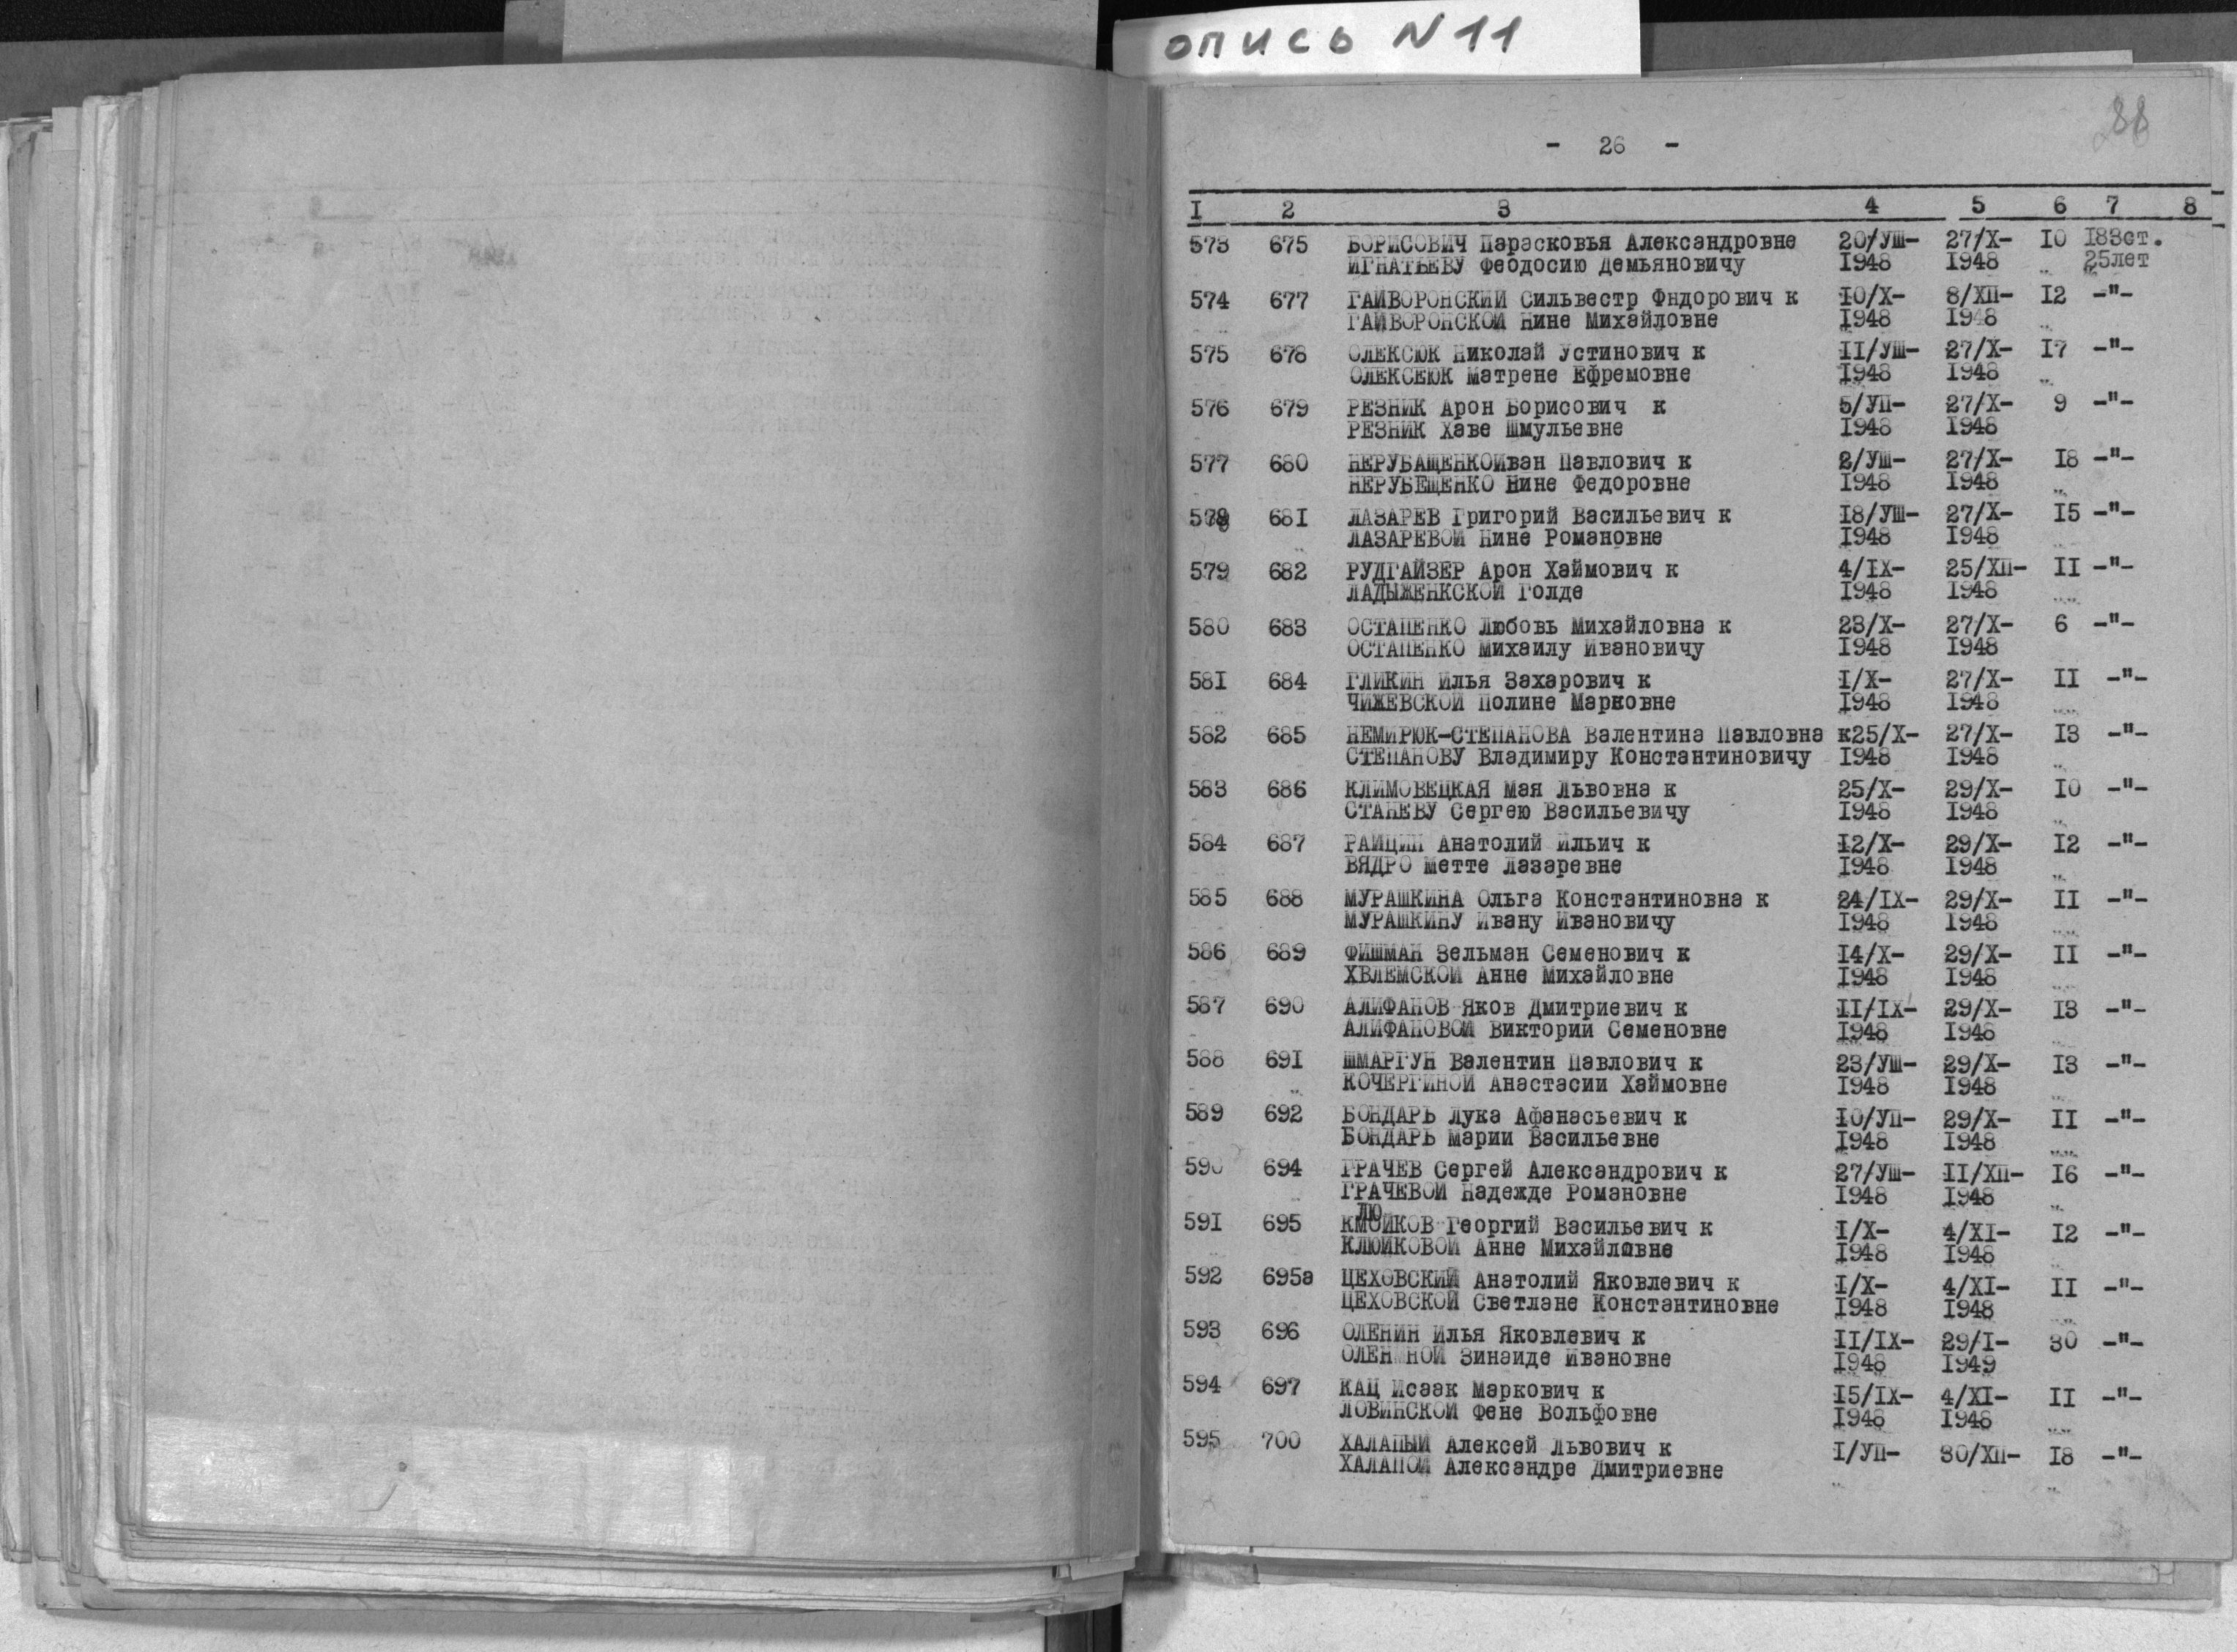 опись N11
88
- 26 -
I 2 3 4 5 6 7 8
573 675 БОРИСОВИЧ Парасковья Александровне 20/УШ- 27/Х- 10 183ст.
ИГНАТЬЕВУ Феодосию Демьяновичу 1948 1948 25лет
574 677 ГАЙВОРОНСКИЙ Сильвестр Фндорович к 10/Х- 8/ХП- 12 -"-
ГАЙВОРОНСКОЙ Нине Михайловне 1948 1948
575 678 ОЛЕКСЮК Николай Устинович к II/УШ- 27/Х- 17 -"-
ОЛЕКСЕЮК Матрене Ефремовне 1948 1948
576 679 РЕЗНИК Арон Борисович к 5/УП- 27/Х- 9 -"-
РЕЗНИК Хаве Шмульевне 1948 1948
577 680 НЕРУБАЩЕНКОИван Павлович к 2/УШ- 27/Х- 18 -"-
НЕРУБЕЩЕНКО Нине Федоровне 1948 1948
578 681 ЛАЗАРЕВ Григорий Васильевич к 18/УШ- 27/Х- 15 -"-
ЛАЗАРЕВОЙ Нине Романовне 1948 1948
579 682 РУДГАЙЗЕР Арон Хаймович к 4/IХ- 25/ХП- II -"-
ЛАДЫЖЕНКСКОЙ Голде 1948 1948
580 683 ОСТАПЕНКО Любовь Михайловна к 23/Х- 27/Х- 6 -"-
ОСТАПЕНКО Михаилу Ивановичу 1948 1948
581 684 ГЛИКИН Илья Захарович к I/Х- 27/Х- II -"-
ЧИЖЕВСКОЙ Полине Марковне 1948 1948
582 685 НЕМИРЮК-СТЕПАНОВА Валентина Павловна к25/Х- 27/Х- 13 -"-
СТЕПАНОВУ Владимиру Константиновичу 1948 1948
583 686 КЛИМОВЕЦКАЯ Мая Львовна к 25/Х- 29/Х- 10 -"-
СТАНЕВУ Сергею Васильевичу 1948 1948
584 687 РАЙЦИН Анатолий Ильич к 12/Х- 29/Х- 12 -"-
ВЯДРО Метте Лазаревне 1948 1948
585 688 МУРАШКИНА Ольга Константиновна к 24/IХ- 29/Х- II -"-
МУРАШКИНУ Ивану Ивановичу 1948 1948
586 689 ФИШМАН Зельман Семенович к 14/Х- 29/Х- II -"-
ХВЛЕМСКОЙ Анне Михайловне 1948 1948
587 690 АЛИФАНОВ Яков Дмитриевич к II/IХ- 29/Х- 13 -"-
АЛИФАНОВОЙ Виктории Семеновне 1948 1948
588 691 ШМАРГУН Валентин Павлович к 23/УШ- 29/Х- 13 -"-
КОЧЕРГИНОЙ Анастасии Хаймовне 1948 1948
589 692 БОНДАРЬ Лука Афанасьевич к 10/УП- 29/Х- II -"-
БОНДАРЬ Марии Васильевне 1948 1948
590 694 ГРАЧЕВ Сергей Александрович к 27/УШ- II/ХП- 16 -"-
ГРАЧЕВОЙ Надежде Романовне 1948 1948
лю
591 695 КМОЙКОВ Георгий Васильевич к I/Х- 4/ХI- 12 -"-
КЛЮЙКОВОЙ Анне Михайловне 1948 1948
592 695а ЦЕХОВСКИЙ Анатолий Яковлевич к I/Х- 4/ХI- II -"-
ЦЕХОВСКОЙ Светлане Константиновне 1948 1948
593 696 ОЛЕНИН Илья Яковлевич к II/IХ- 29/I- 30 -"-
ОЛЕНИНОЙ Зинаиде Ивановне 1948 1949
594 697 КАЦ Исаак Маркович к 15/IХ- 4/ХI- II -"-
ЛОВИНСКОЙ Фене Вольфовне 1948 1948
595 700 ХАЛАПЫЙ Алексей Львович к I/УП- 30/ХП- 18 -"-
ХАЛАПОЙ Александре Дмитриевне